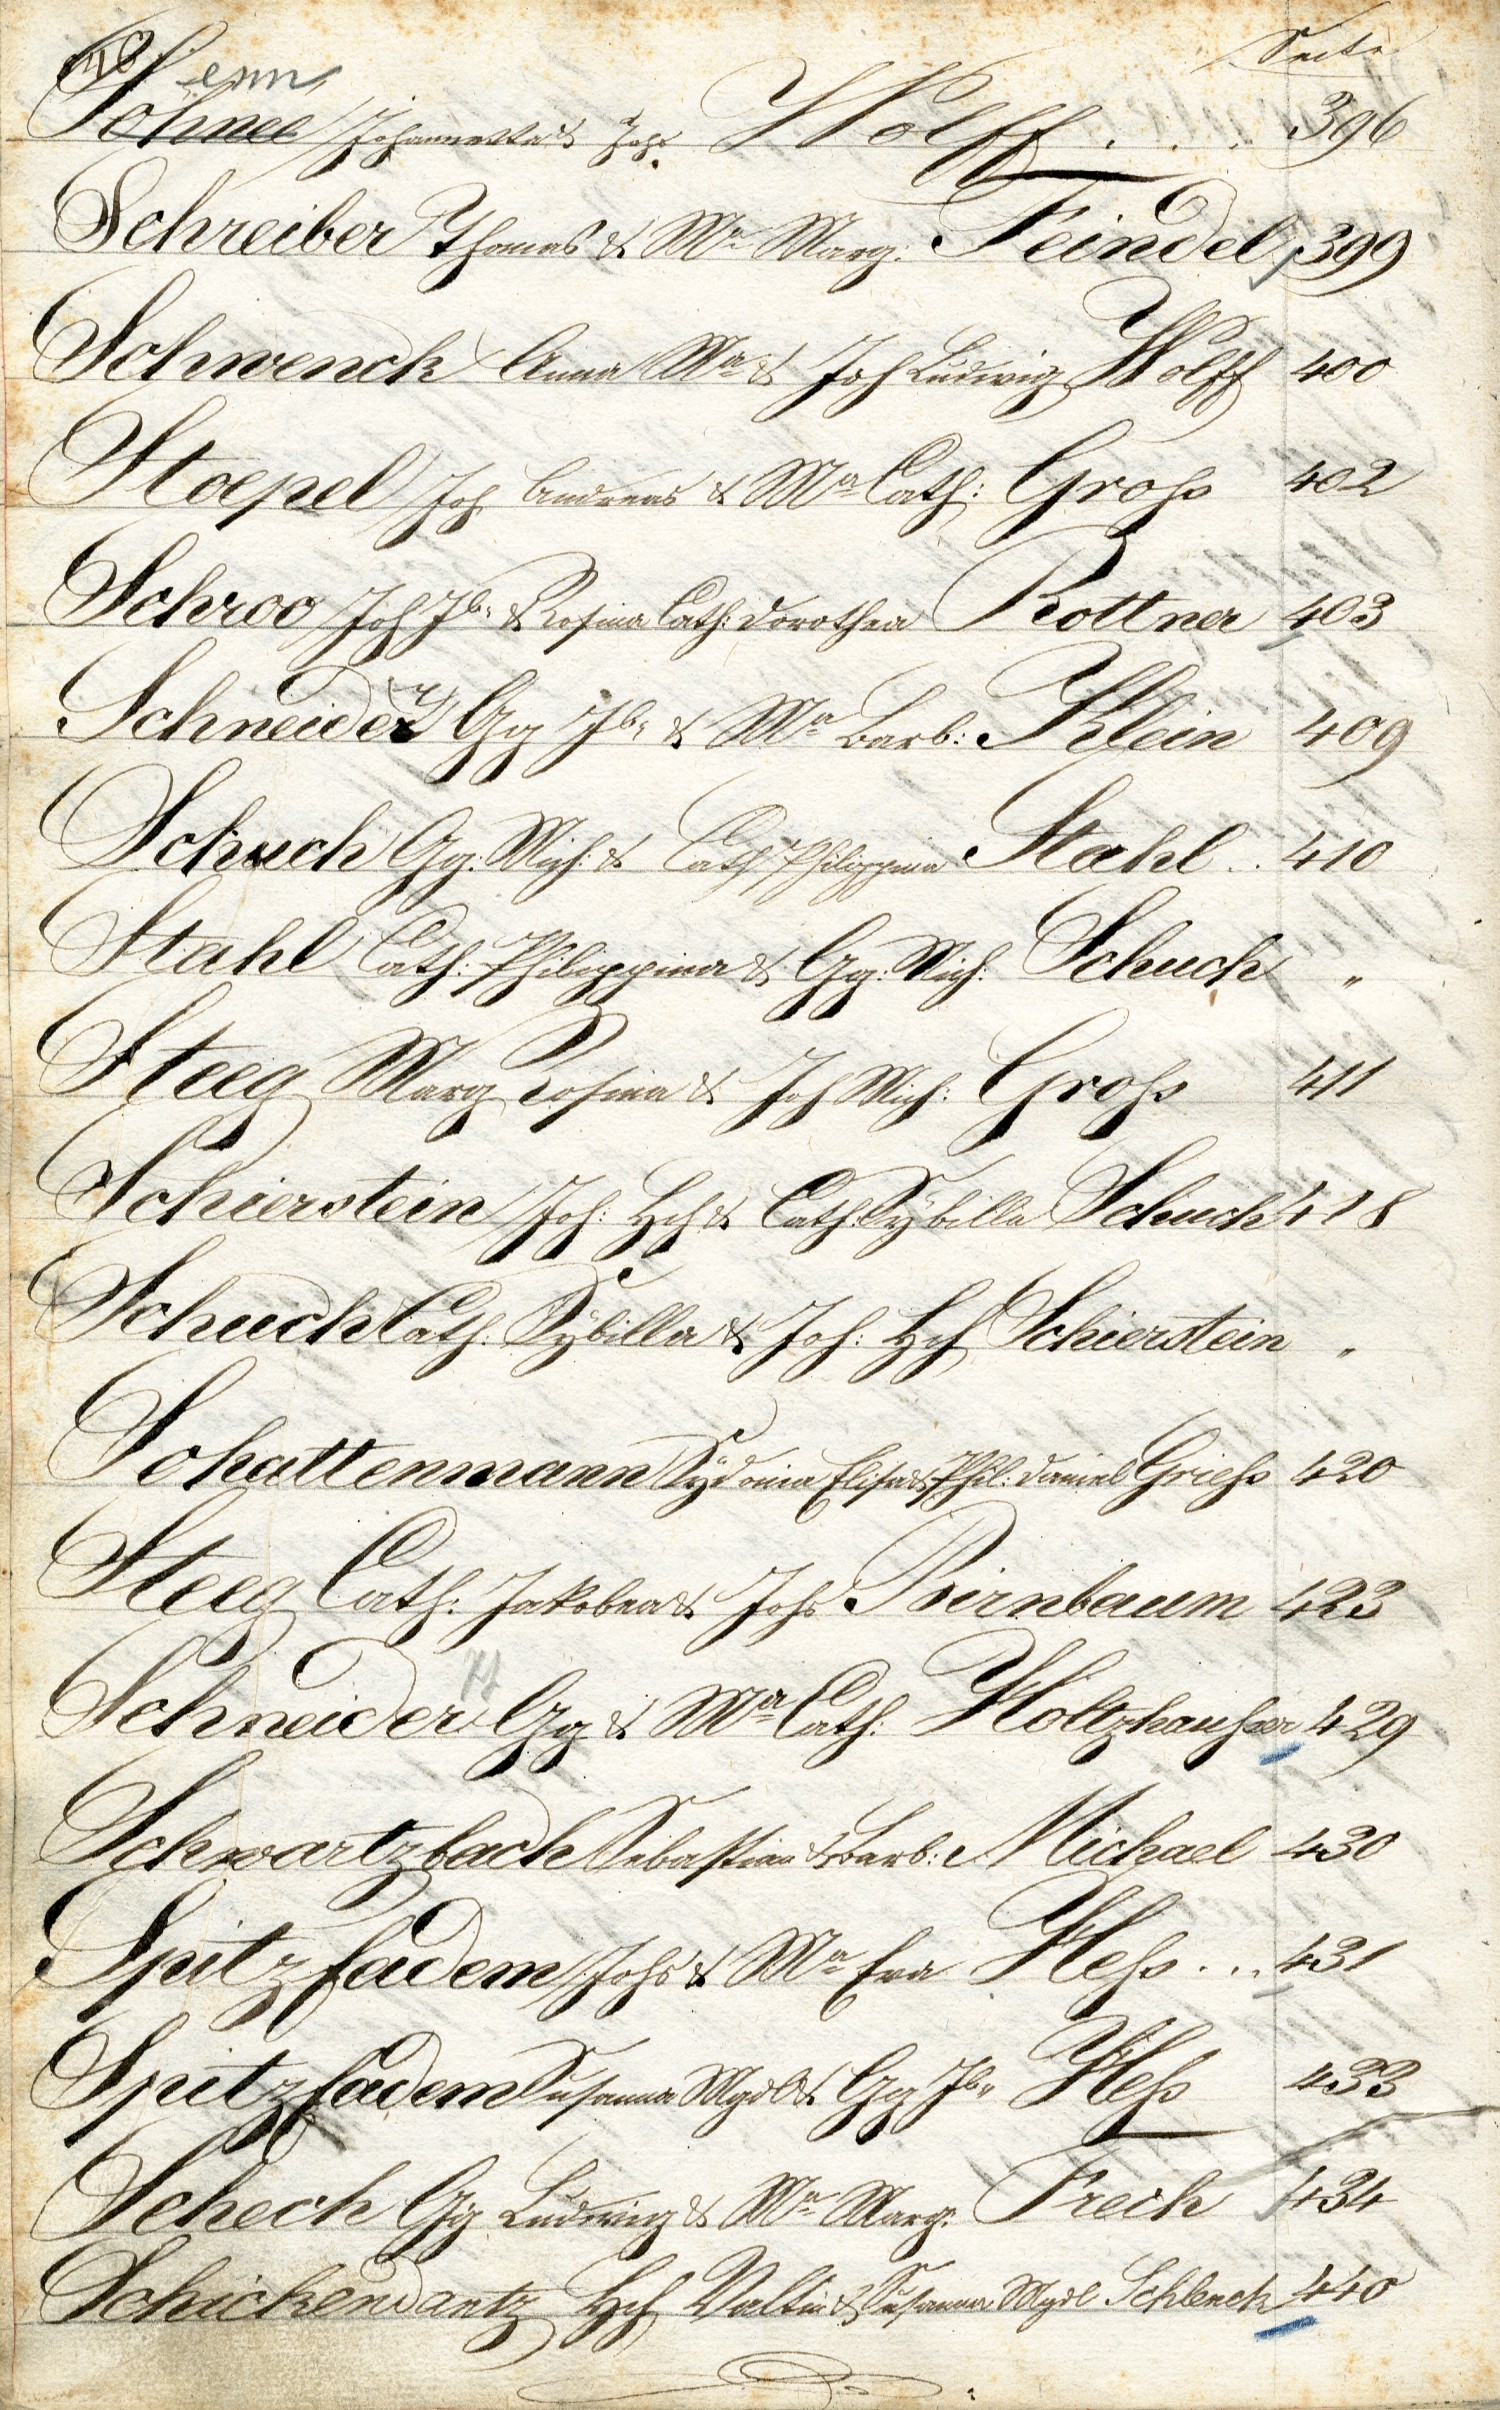 Seite
Söhnee Johannetta & Johs Wolff . . . 396
enn
Schreiber Thomas & Ma Marg: Feindel 399
Schwenck Anna Ma & Joh Ludwig Wolff 400
Stoepel Joh Andreas & Ma Cath: Groß 402
Schroo Joh Jb. & Rosina Cath: Dorothea Rottner 403
Schneider Gg Jb. & Ma Barb: Klein 409
Schuch Gg: Mich: & Cath Philippina Stahl .. 410
Stahl Cath: Philippina & Gg: Mich: Schuch "
Steeg Marg Rosina & Joh Mich: Groß 411
Schierstein Joh: Hch & Cath: Sybilla Schuch 418
Schuch Cath: Sybilla & Joh: Hch Schierstein "
Schattenmann Sydonia Elisa & Phil: Daniel Grieß 420
Steeg Cath: Jakobea & Johs Birnbaum 423
Schneider Gg & Ma Cath: Holtzhauser 429
Schwartzbach Sebastian & Barb: Michael 430
Spitzfadem Johs & Ma Eva Heß ... 431
Spitzfadem Susanna Mgdl & Gg Jb. Heß 433
Schech Gg Ludwig & Ma Marg: Frech 434
Schickendantz Hch Valtin & Susanna Mgdl Schlenck 440